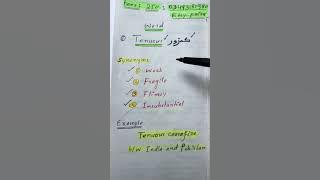 Fees: 250
Easy-paisa
Word
Tenuous کمزور
Synonyms
① Weak
② Fragile
③ Flimsy
④ Insubstantial
Example
Tenuous ceasefire
b/w India and Pakistan